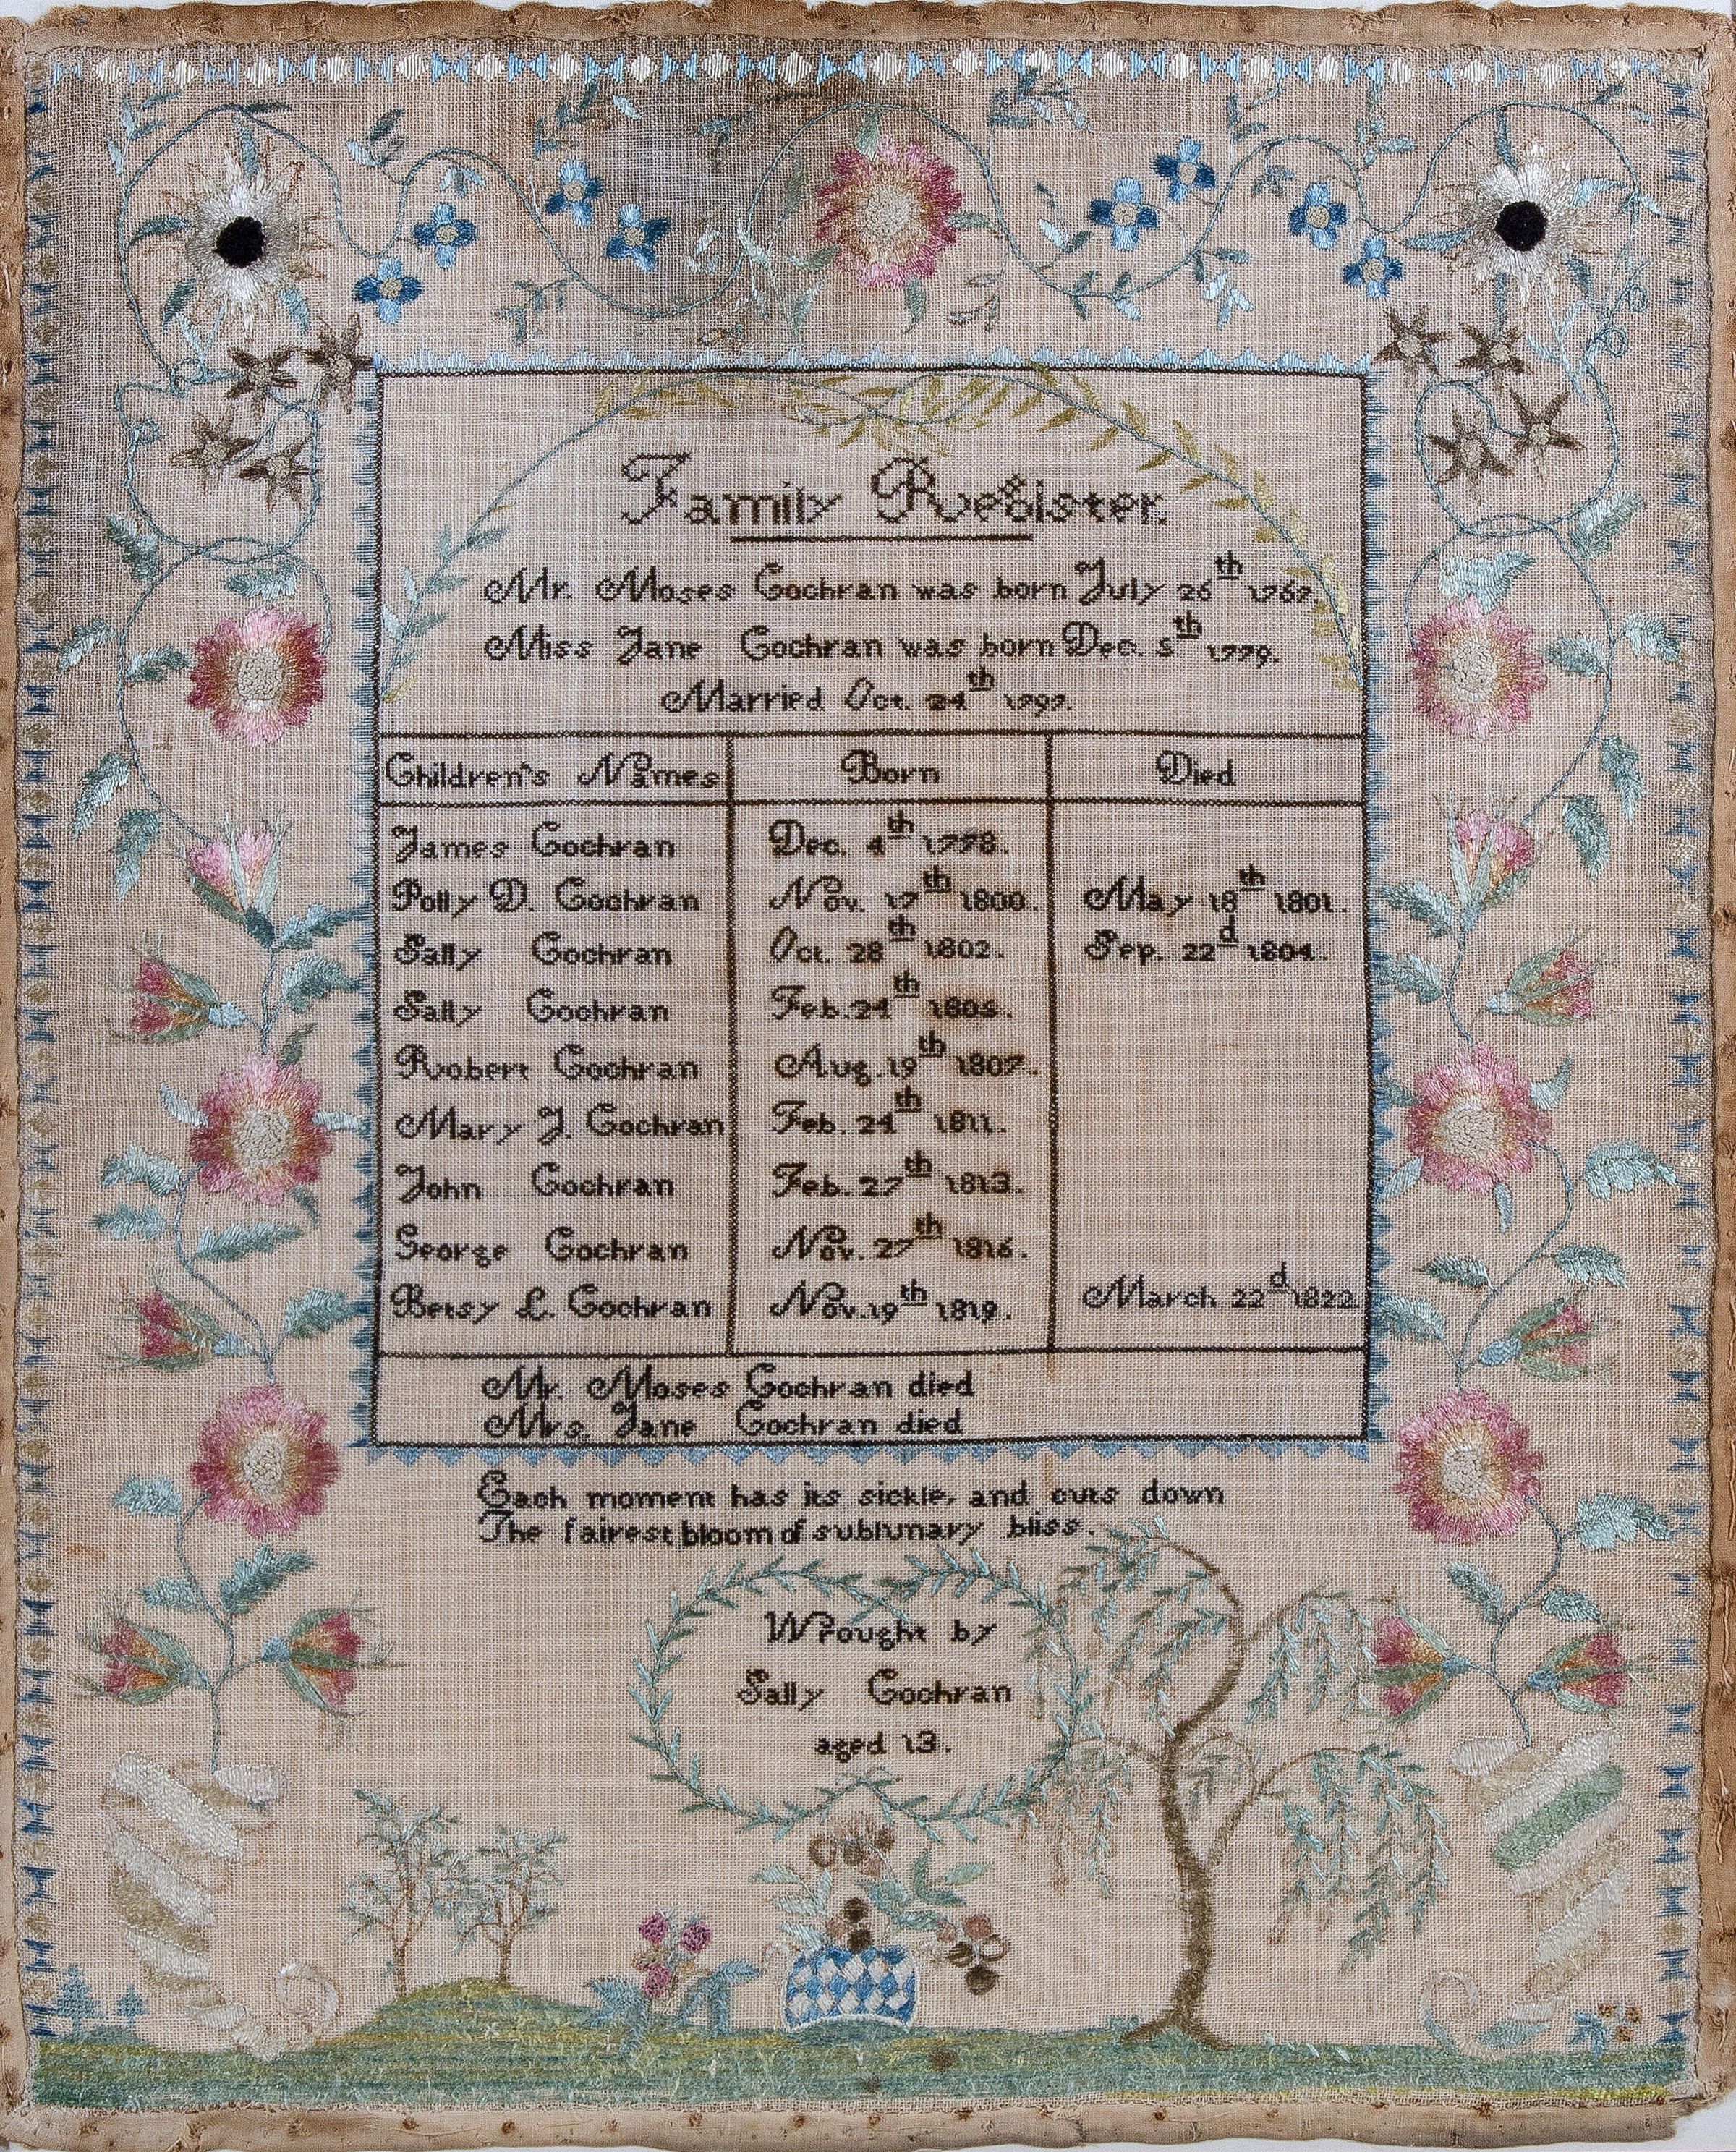 Family Register.
Mr. Moses Cochran was born July 26th 1767.
Miss Jane Cochran was born Dec. 5th 1779.
Married Oct. 24th 1797.
Children's Names Born Died
James Cochran Dec. 4th 1778.
Polly D. Cochran Nov. 17th 1800. May 18th 1801.
Sally Cochran Oct. 28th 1802. Sep. 22d 1804.
Sally Cochran Feb. 24th 1805.
Robert Cochran Aug. 19th 1807.
Mary J. Cochran Feb. 24th 1811.
John Cochran Feb. 27th 1813.
George Cochran Nov. 27th 1816.
Betsy L. Cochran Nov. 19th 1819. March 22d 1822.
Mr. Moses Cochran died
Mrs. Jane Cochran died
Each moment has its sickle, and cuts down
The fairest bloom of sublunary bliss.
Wrought by
Sally Cochran
aged 13.